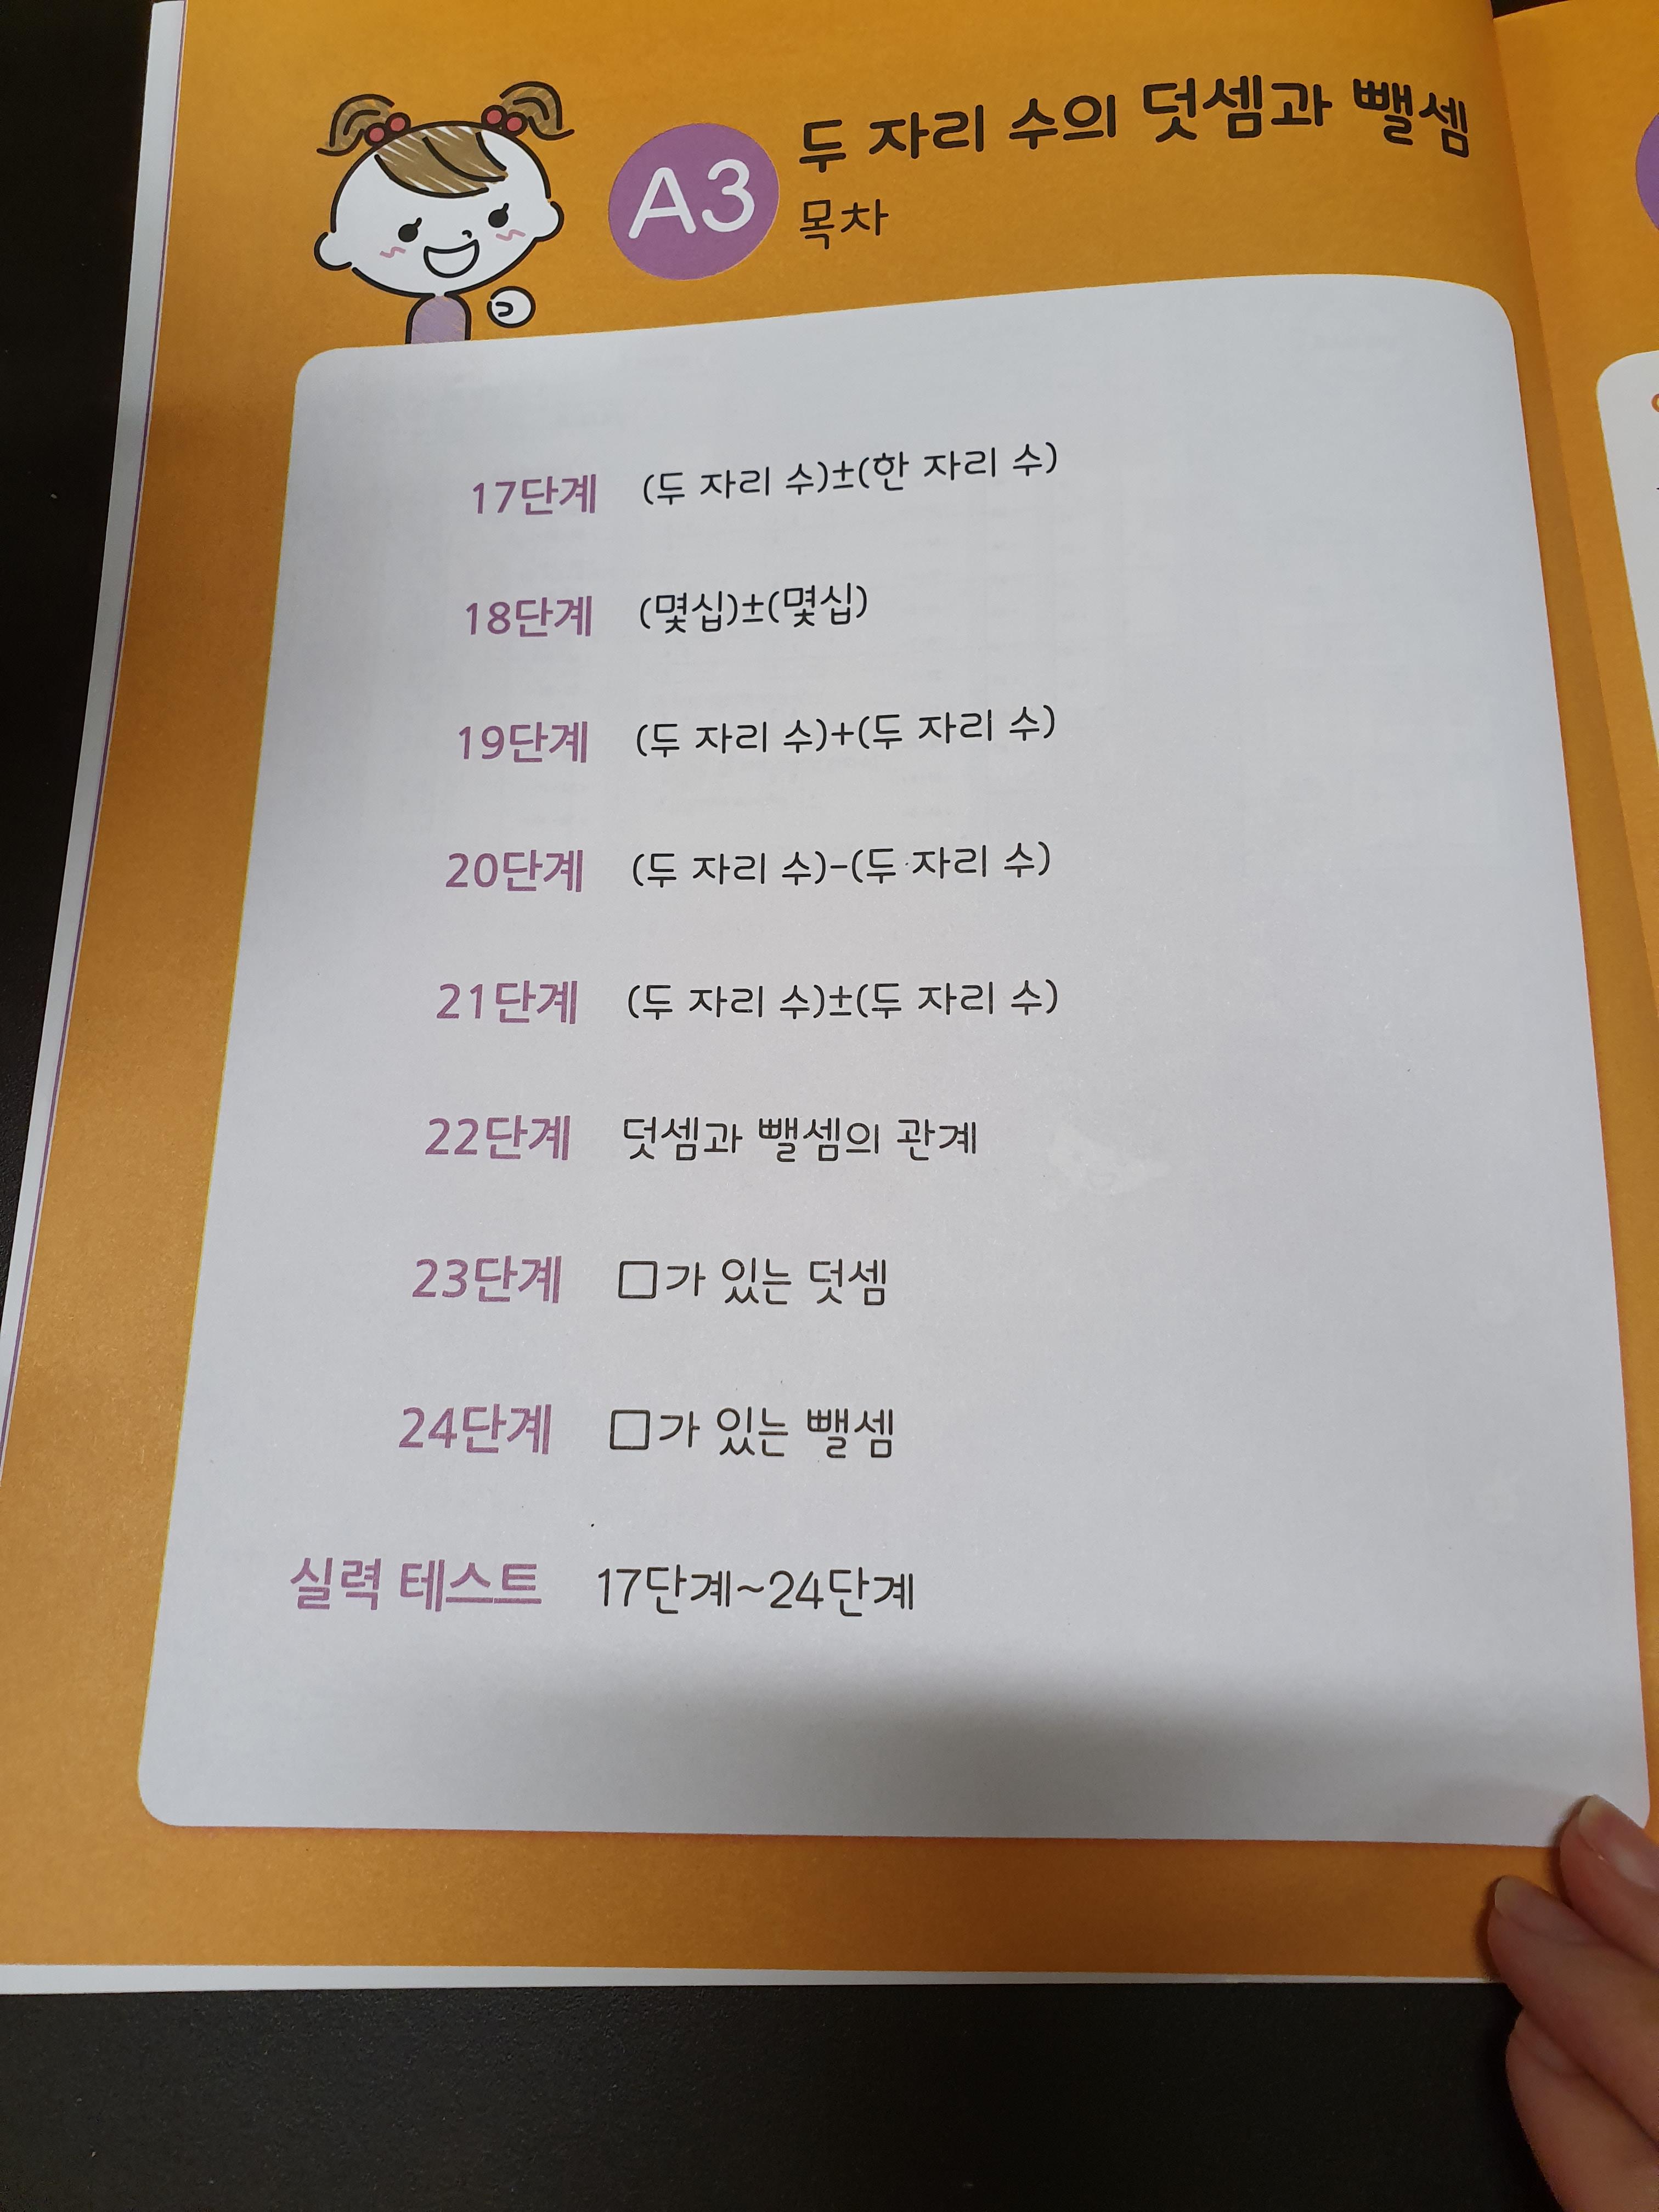 A3 두 자리 수의 덧셈과 뺄셈
목차
17단계 (두 자리 수)±(한 자리 수)
18단계 (몇십)±(몇십)
19단계 (두 자리 수)+(두 자리 수)
20단계 (두 자리 수)-(두 자리 수)
21단계 (두 자리 수)±(두 자리 수)
22단계 덧셈과 뺄셈의 관계
23단계 □가 있는 덧셈
24단계 □가 있는 뺄셈
실력 테스트 17단계~24단계